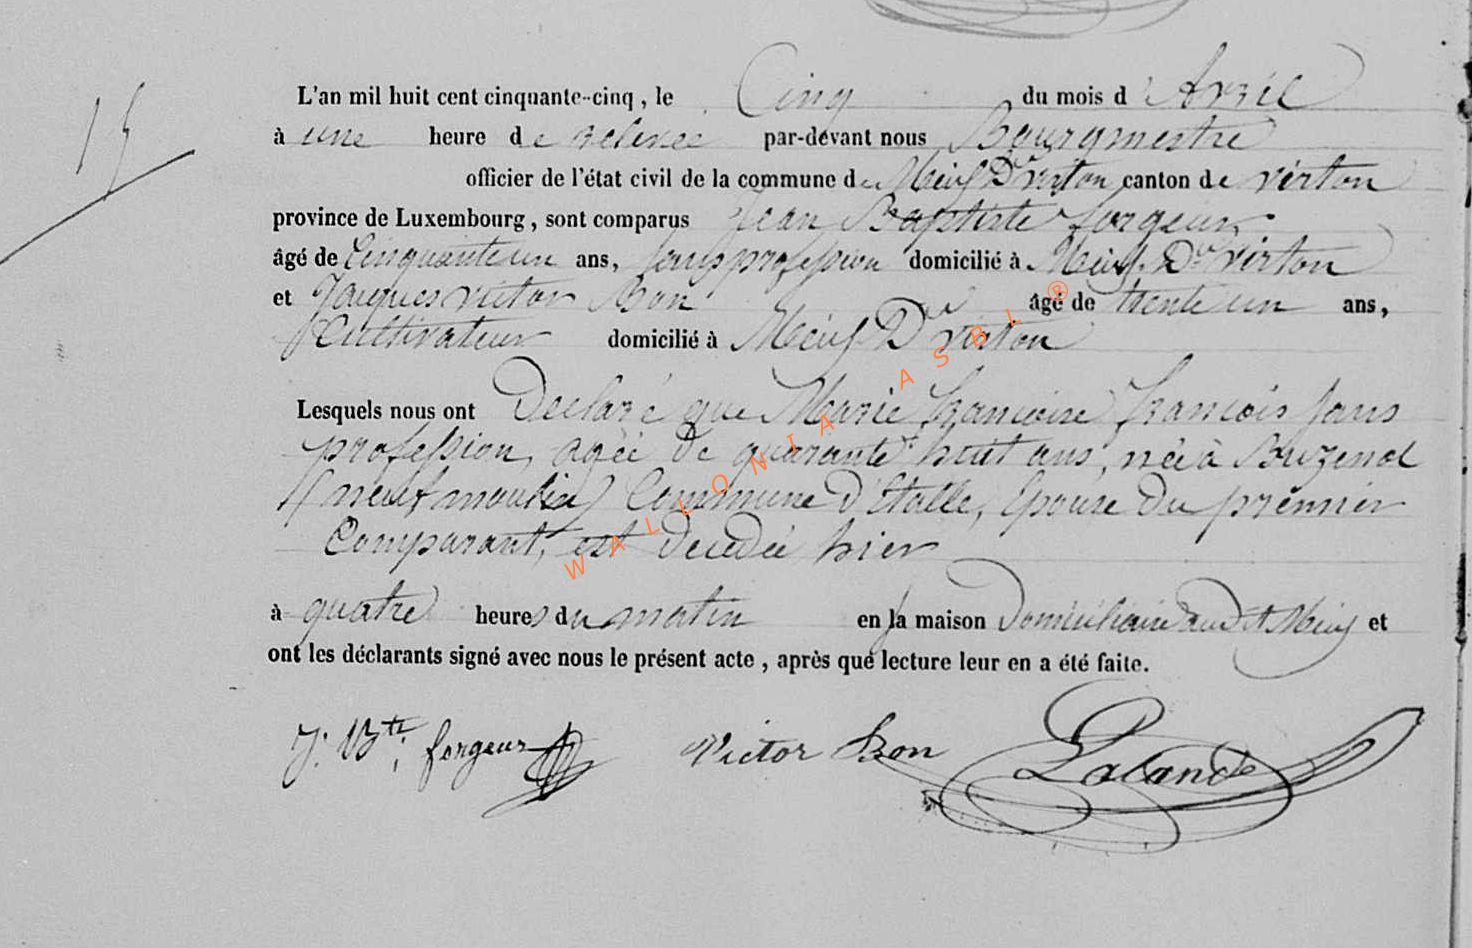 15
L'an mil huit cent cinquante-cinq, le Cinq du mois d'Avril
à une heure de relevée par-devant nous Bourgmestre
officier de l'état civil de la commune de Meix Dt virton canton de virton
province de Luxembourg, sont comparus Jean Baptiste forgeur
âgé de Cinquante un ans, sans profession domicilié à Meix Dt virton
et Jacques victor Bon âgé de trente un ans,
Cultivateur domicilié à Meix Dt virton
Lesquels nous ont Déclaré que Marie francoise francois sans
profession, agée de quarante huit ans, née à Buzenol
(neuf moulin) Commune d'Etalle, Epouse du premier
Comparant, est décédée hier
à quatre heures du matin en sa maison Domiciliaire audit Meix et
ont les déclarants signé avec nous le présent acte, après que lecture leur en a été faite.
J. Bte forgeur Victor Bon Lalande
WALLONIA ASBL ®